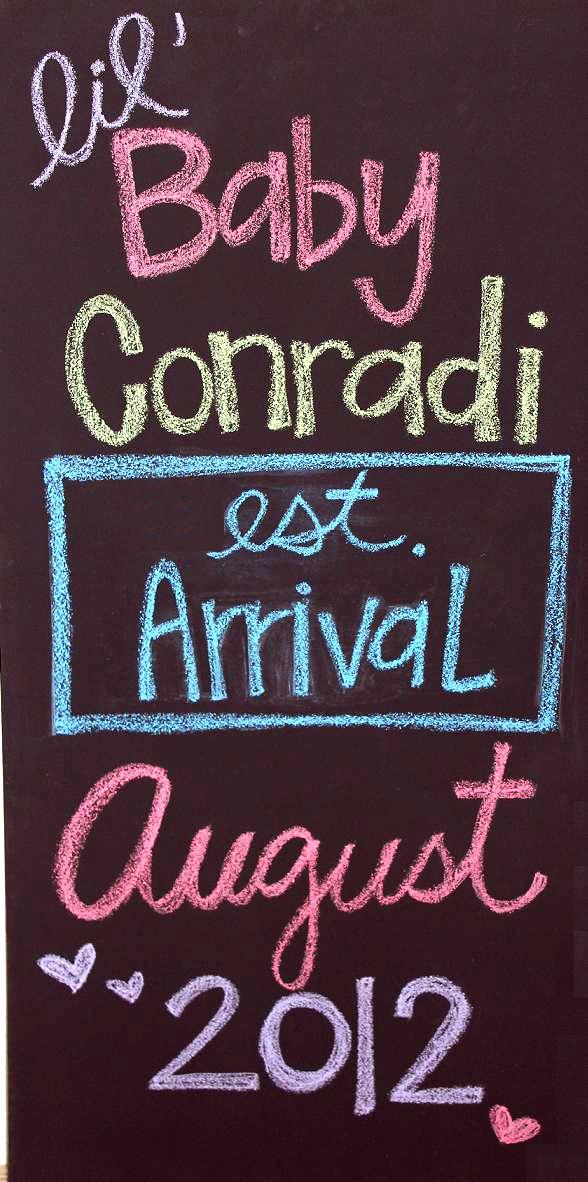 lil'
Baby
Conradi
est.
Arrival
August
2012